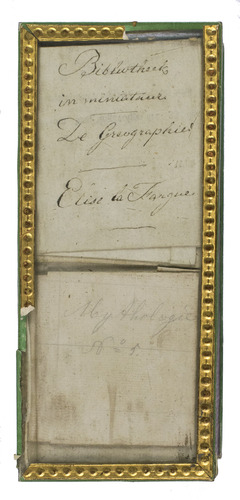 Bibliotheek
in miniatuur
De Geographie
Elise la Fargue
Mythologie
No 5